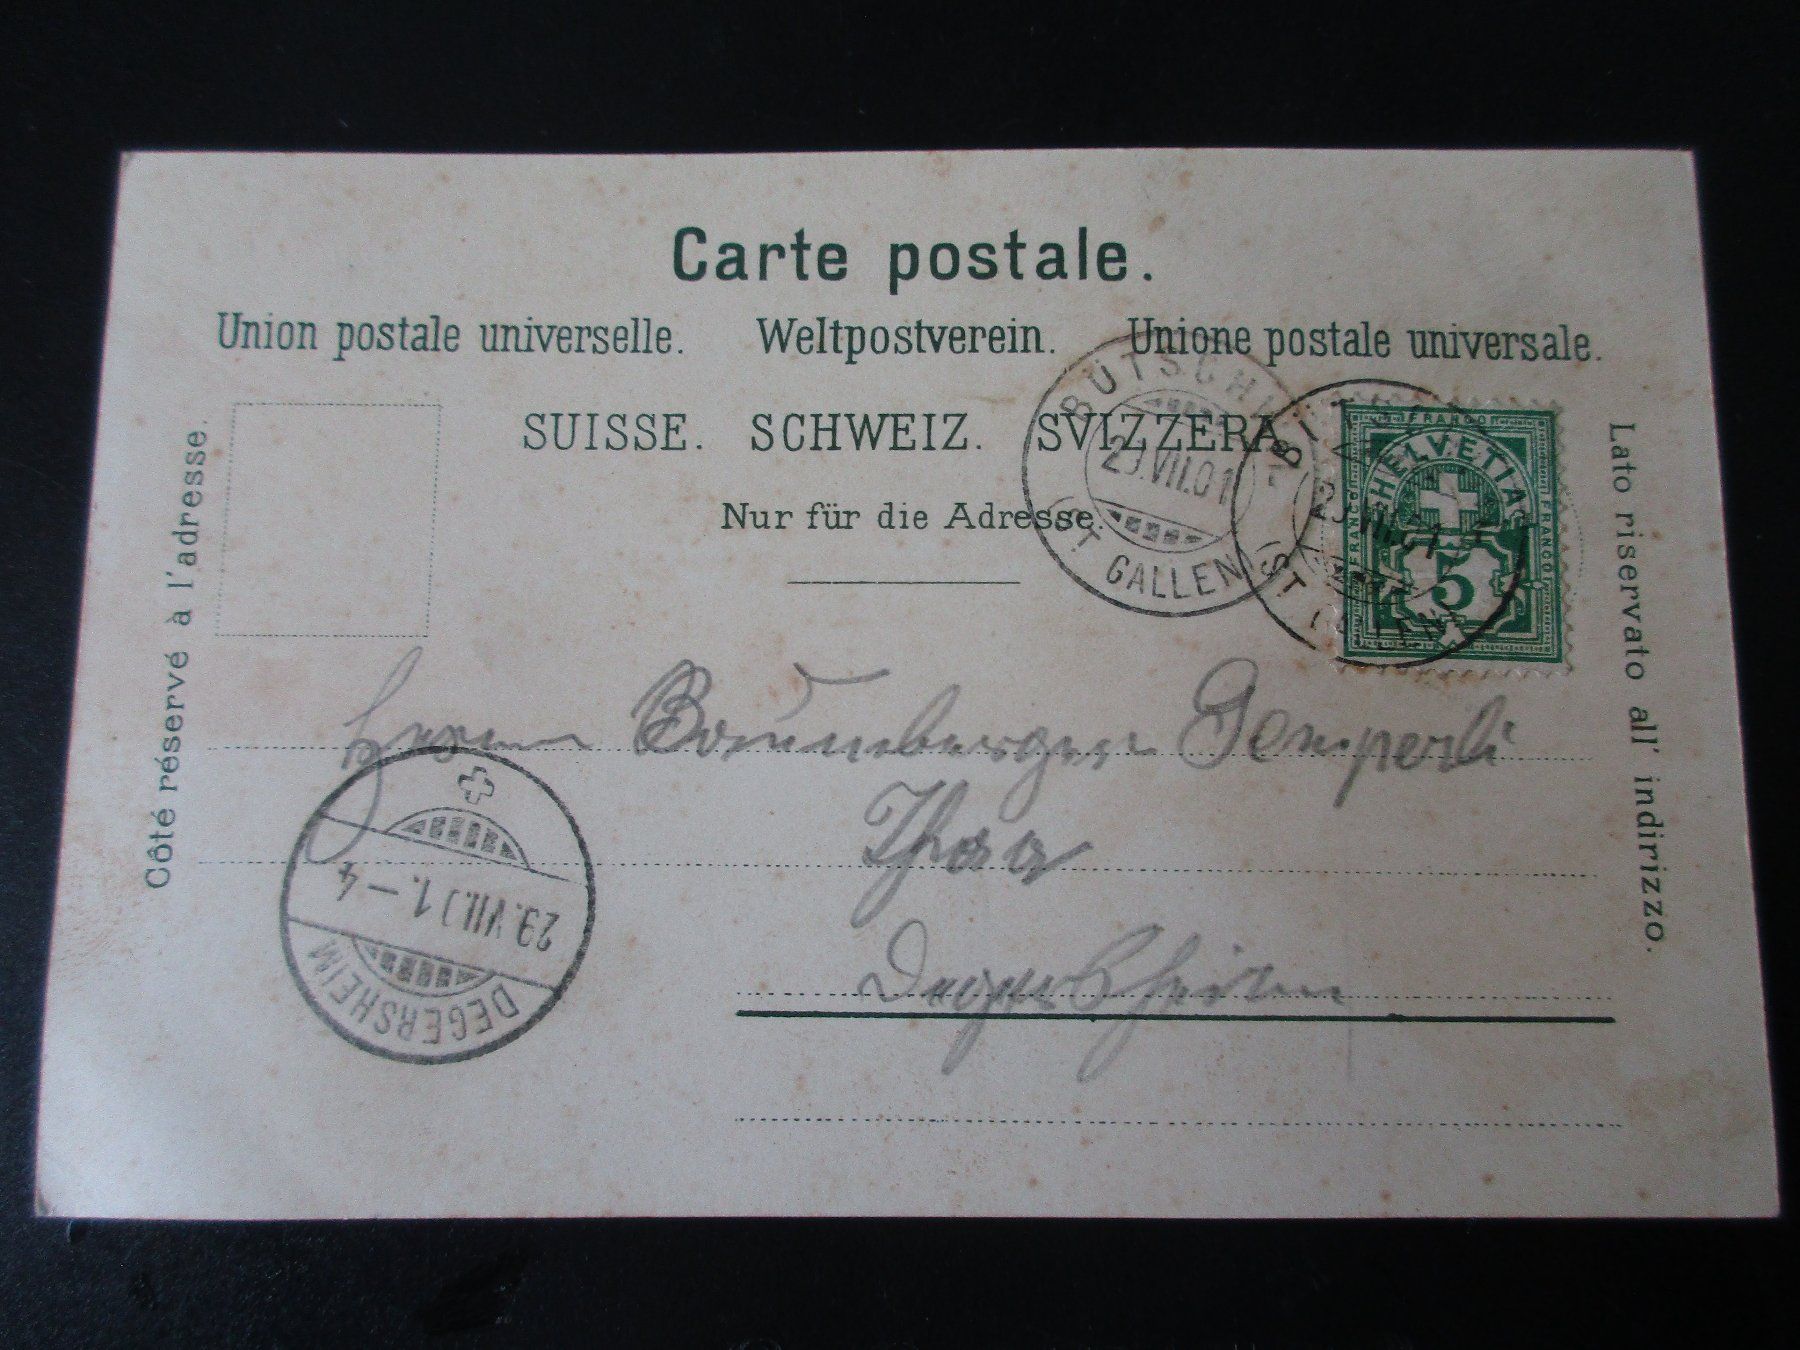 Carte postale.
Union postale universelle. Weltpostverein. Unione postale universale.
SUISSE. SCHWEIZ. SVIZZERA
Nur für die Adresse.
Côté réservé à l'adresse.
Lato riservato all' indirizzo.
BÜTSCHWIL
29.VII.01
(ST. GALLEN)
BÜTSCHWIL
29.VII.01
(ST. GALLEN)
FRANCO
FRANCO
FRANCO
HELVETIA
5
Herrn Baumberger Gemperli
Thaa
Degersheim
29.VII.01.-4
DEGERSHEIM